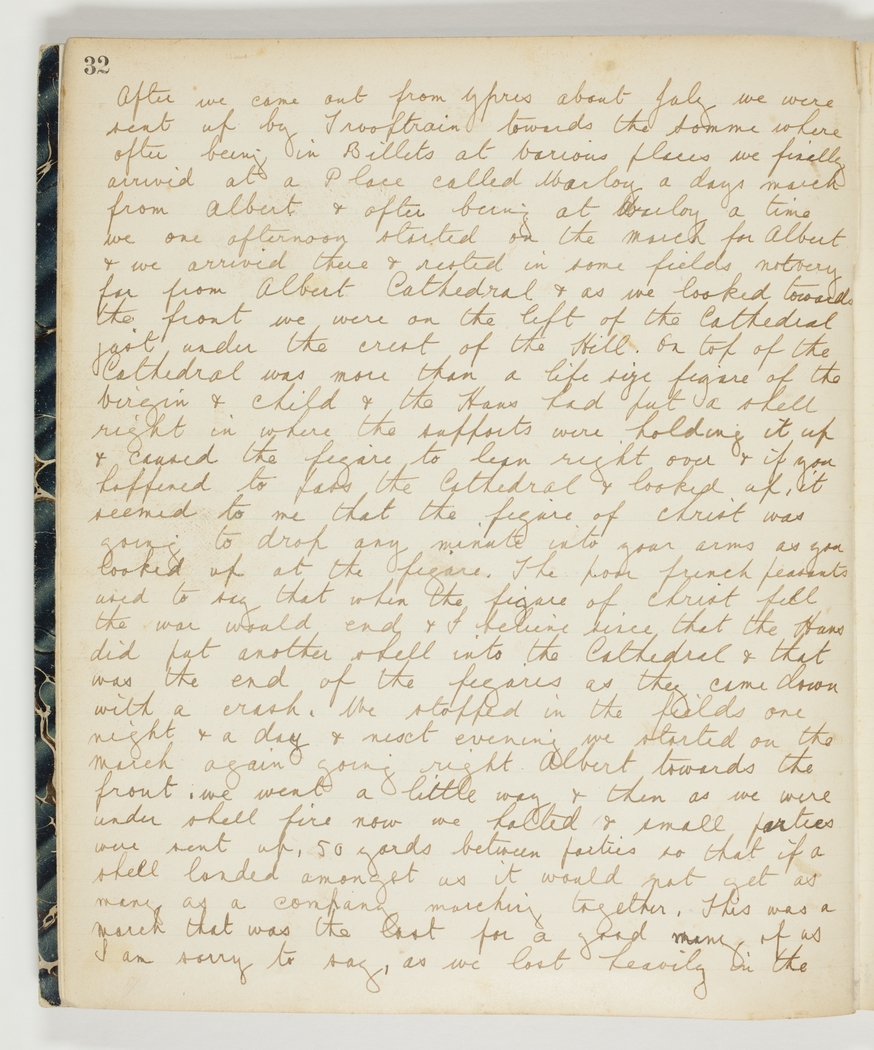 32
After we came out from Ypres about July we were
sent up by Trooptrain towards the Somme where
after being in Billets at various places we finally
arrivid at a Place called Warloy a days march
from Albert & after being at Warloy a time
we one afternoon started on the march for Albert
& we arrivid there & rested in some fields not very
far from Albert Cathedral & as we looked towards
the front we were on the left of the Cathedral
just under the crest of the Hill. On top of the
Cathedral was more than a life size figure of the
Virgin & Child & the Huns had put a shell
right in where the supports were holding it up
& caused the figure to lean right over & if you
happened to pass the Cathedral & looked up, it
seemed to me that the figure of Christ was
going to drop any minute into your arms as you
looked up at the figure. The poor french peasants
used to say that when the figure of Christ fell
the war would end & I believe since that the Huns
did put another shell into the Cathedral & that
was the end of the figures as they came down
with a crash. We stopped in the fields one
night & a day & next evening we started on the
march again going right Albert towards the
front. we went a little way & then as we were
under shell fire now we halted & small parties
were sent up, 50 yards between parties so that if a
shell landed amongst us it would not get as
many as a company marching together. This was a
march that was the last for a good many of us
I am sorry to say, as we lost heavily in the